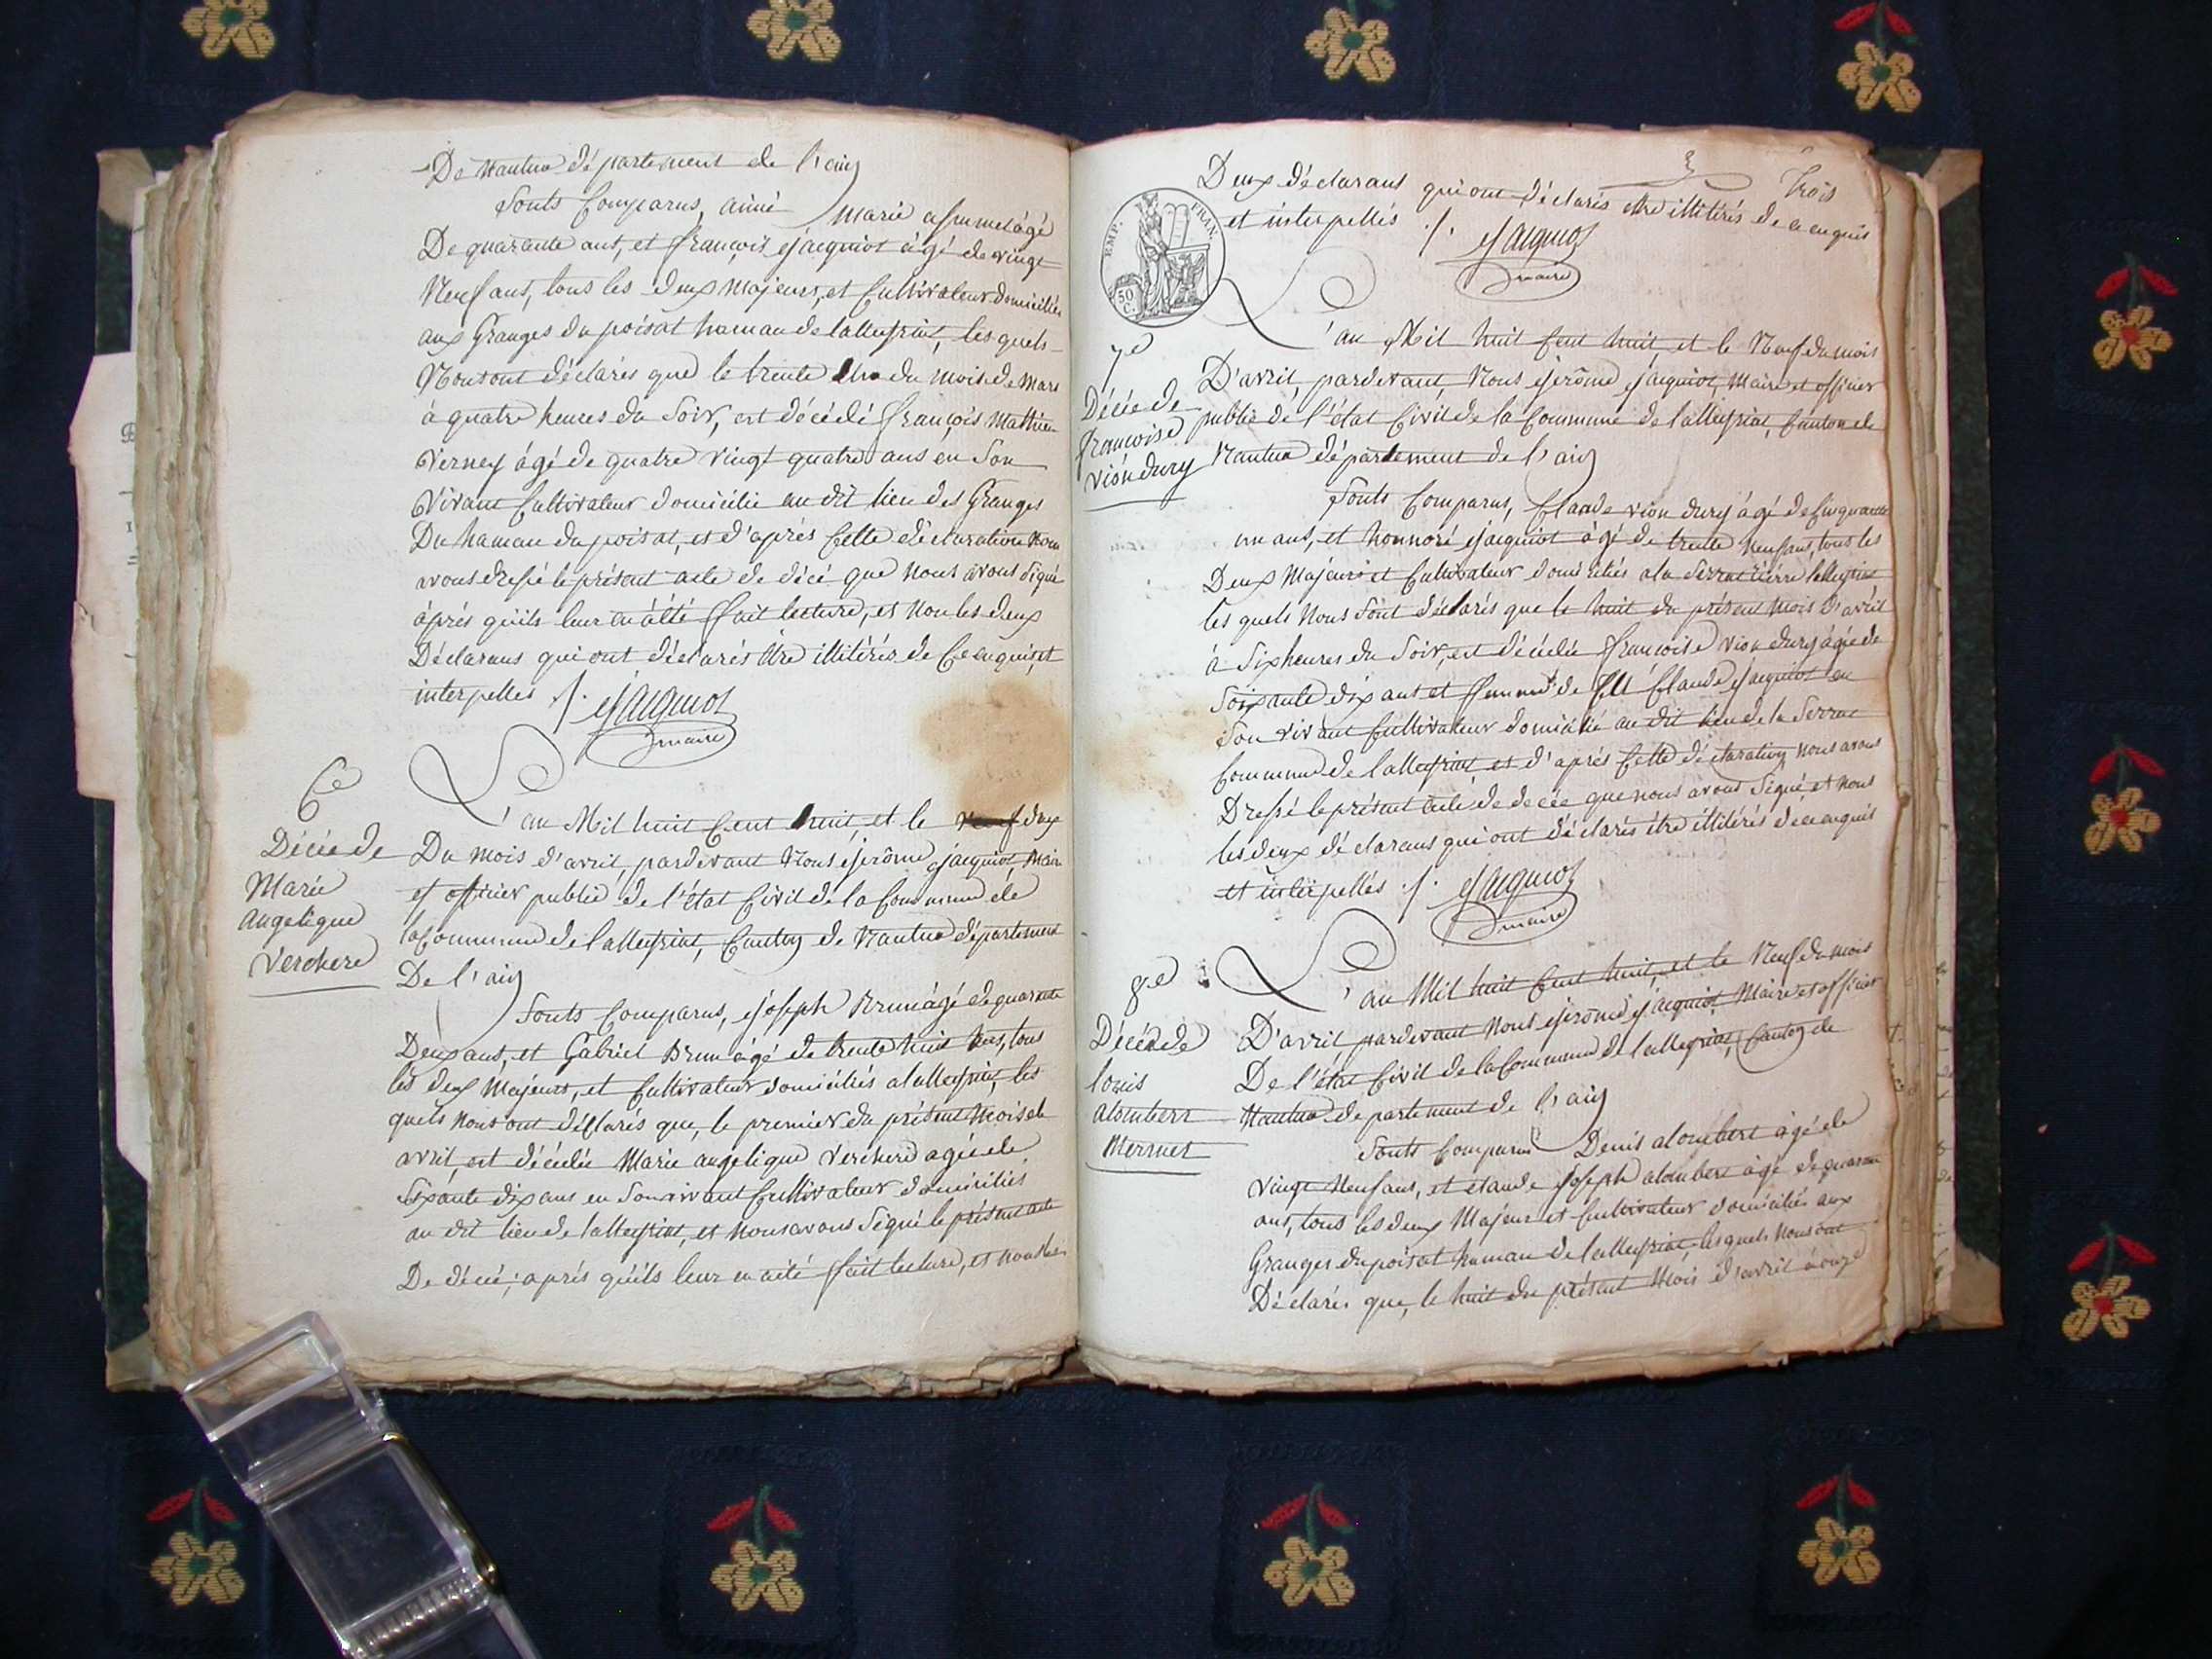 De Nantua département de l'ain
Sonts Comparus, aimé Marie agé
De quarante ans, et françois jacquiot agé de vingt
Neuf ans, tous les deux Majeurs, et Cultivateur domiciliés
aux Granges du poisat hamau de lalleyriat, les quels
Nous ont déclarés que le trente du mois de Mars
à quatre heures du Soir, est décédé françois Mathieu
Verney agé de quatre vingt quatre ans en Son
Vivant Cultivateur domicilié au dit lieu des Granges
Du hamau du poisat, et d'après Cette déclaration Nous
avons dressé le présent acte de décé que Nous avons Signé
après qu'ils leur en a été fait lecture, et Non les deux
Déclarans qui ont déclarés être illitérés de Ce enquis, et
interpelles ./. jacquiot
maire
6e
Décée de
Marie
angelique
Verchere
L'an Mil huit Cent huit, et le deux
Du mois d'avril, pardevant Nous jerôme jacquiot, Maire
et officier public de l'état Civil de la Commune de
la Commune de lalleyriat, Canton de Nantua département
De l'ain
Sonts Comparus, joseph Brun agé de quarante
Deux ans, et Gabriel Brun agé de trente huit ans, tous
les deux Majeurs, et Cultivateur domiciliés a lalleyriat, les
quels Nous ont déclarés que, le premier du présent Mois de
avril, est décédée Marie angelique Verchere agée de
Sixante dix ans en Son vivant Cultivateur domiciliés
au dit lieu de lalleyriat, et Nous avons Signé le présent acte
De décée; après qu'ils leur en a été fait lecture, et non les
3 Trois
EMP. FRAN.
50 C.
Deux déclarans qui ont déclarés être illitérés de ce enquis
et interpellés ./. jacquiot
maire
7e
Décée de
francoise
vion dury
L'an Mil huit Cent huit, et le Neuf du mois
D'avril, pardevant Nous jerôme jacquiot, Maire et officier
public de l'état Civil de la Commune de lalleyriat, Canton de
Nantua département de l'ain
Sonts Comparus, Claude vion dury agé de Cinquante
un ans, et honnoré jacquiot agé de trente neuf ans, tous les
Deux Majeurs et Cultivateur domiciliés a la Serraz lalleyriat
les quels Nous Sont déclarés que le huit du présent Mois d'avril
à Six heures du Soir, est décédée francoise vion dury agée de
Soixante dix ans et femme de Claude jacquiot en
Son vivant Cultivateur domicilié au dit lieu de la Serraz
Commune de lalleyriat, et d'après Cette déclaration Nous avons
Dressé le présent acte de decée que nous avons Signé et nous
les deux déclarans qui ont déclarés être illitérés de ce enquis
et interpellés ./. jacquiot
maire
8e
Décée de
louis
alombert
Mermet
L'an Mil huit Cent huit, et le Neuf du mois
D'avril pardevant Nous jerôme jacquiot Maire et officier
De l'état Civil de la Commune de lalleyriat, Canton de
Nantua departement de l'ain
Sonts Comparus Denis alombert agé de
vingt Neuf ans, et claude joseph alombert agé de quarante
ans, tous les deux Majeur et Cultivateur domiciliés aux
Granges du poisat hamau de lalleyriat, les quels Nous ont
Déclarés que, le huit du présent Mois d'avril à onze